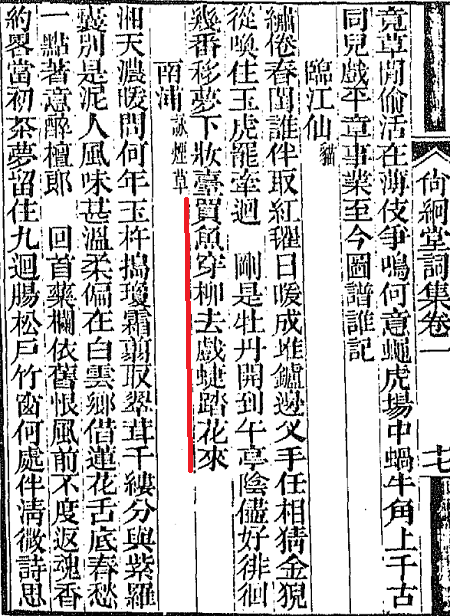 尙絅堂詞集卷一
竟草閒偷活在薄伎爭鳴何意蠅虎場中蝸牛角上千古
同兒戲平章事業至今圖譜誰記
臨江仙 貓
繡倦春閨誰伴取紅氍日暖成堆鑪邊叉手任相猜金猊
從喚住玉虎罷牽迴　剛是牡丹開到午亭陰儘好徘徊
幾番移夢下妝臺買魚穿柳去戲蜨踏花來
南浦 詠煙草
湘天濃暖問何年玉杵搗瓊霜翦取翠茸千縷分與紫羅
囊別是泥人風味甚溫柔偏在白雲鄉借蓮花舌底春愁
一點著意醉檀郎　回首藥欄依舊恨風前不度返魂香
約畧當初茶夢留住九迴腸松戶竹窗何處伴淸微詩思